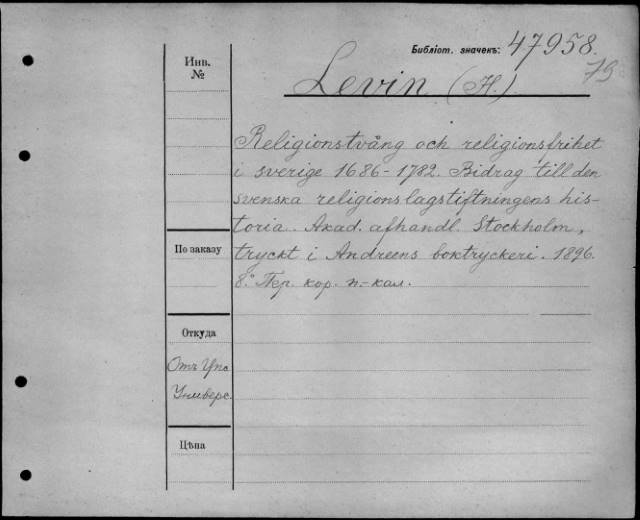 Библіот. значекъ: 47958.
75
Инв. №
Levin (H.)
Religionstvång och religionsfrihet
i sverige 1686-1782. Bidrag till den
svenska religionslagstiftningens his-
toria. Akad. afhandl. Stockholm,
tryckt i Andreens boktryckeri. 1896.
8.° Пер. кор. п.-кал.
По заказу
Откуда
Отъ Упс
Универс.
Цѣна